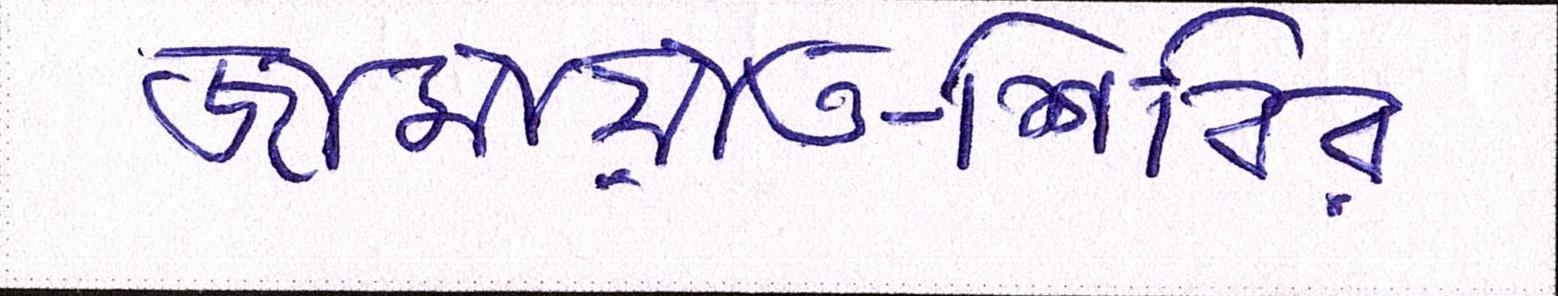 জামায়াত-শিবির